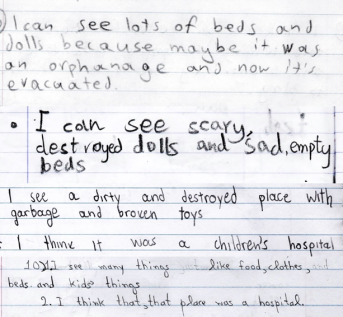 I can see lots of beds and
dolls because maybe it was
an orphanage and now it's
evacuated.
• I can see scary,
destroyed dolls and sad, empty
beds
I see a dirty and destroyed place with
garbage and broken toys
I think it was a children's hospital
I see many things like food, clothes,
beds and kids things
2. I think that, that place was a hospital.